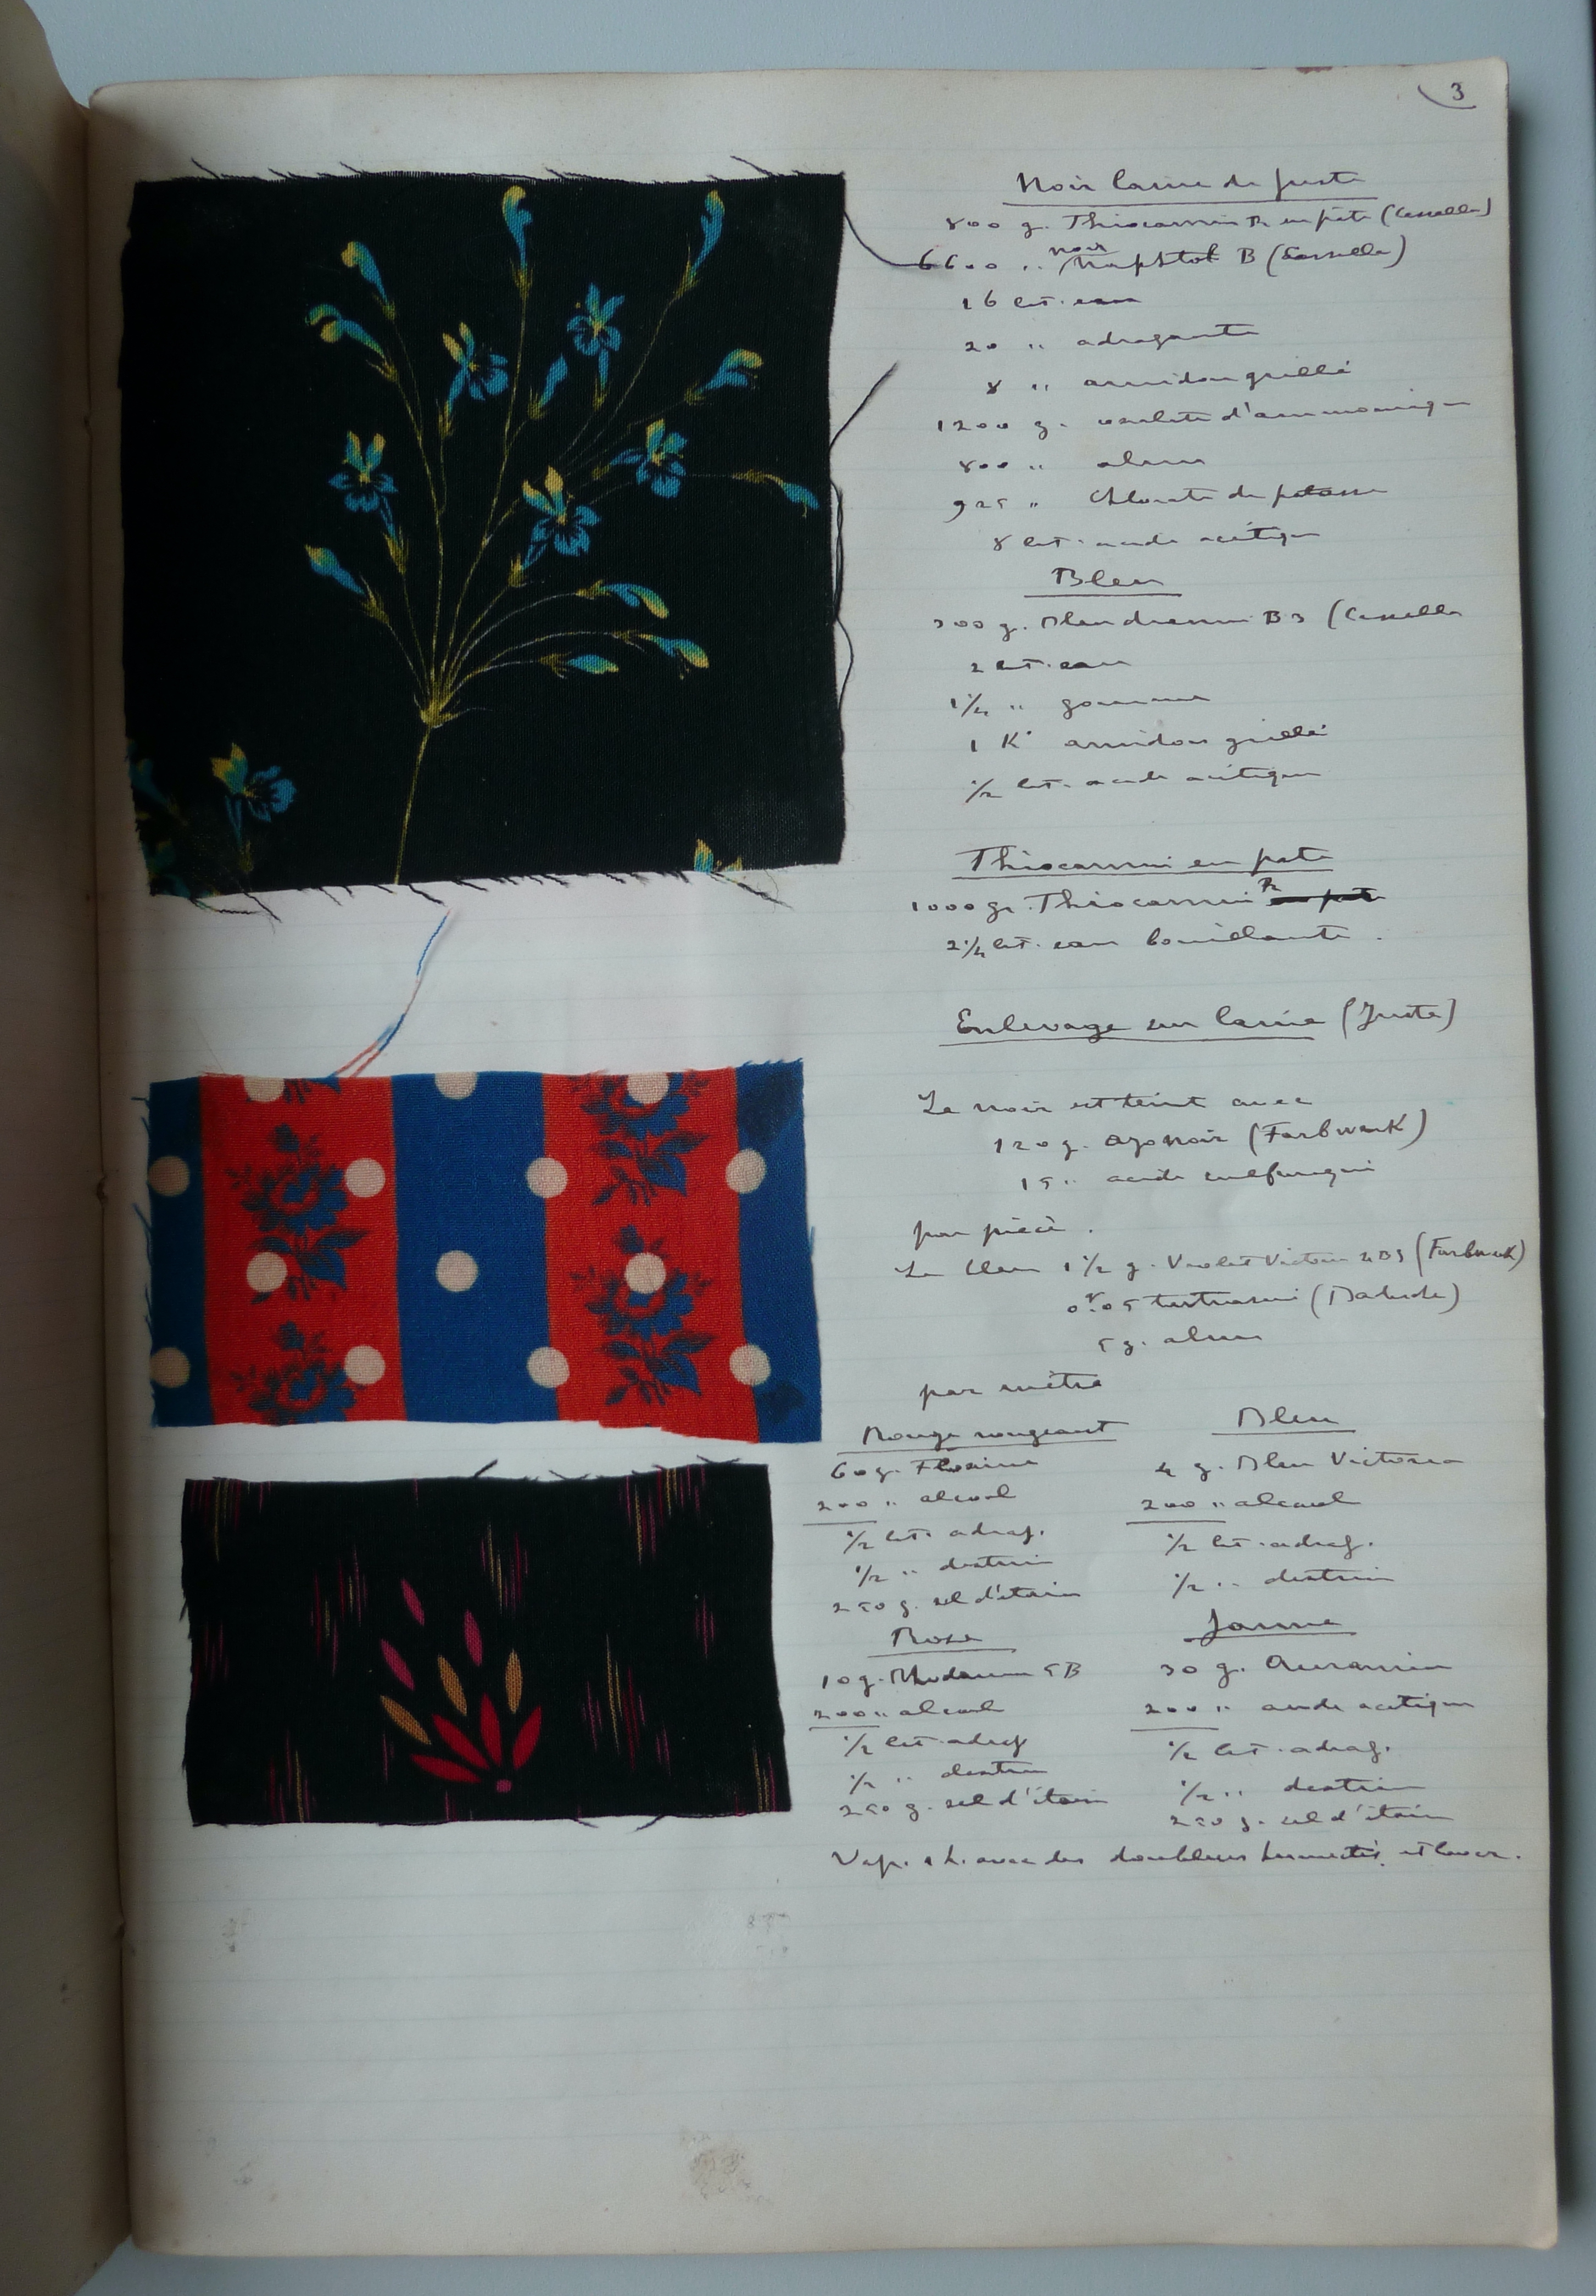 3
Noir laine de Juste
800 g. Thiocarmin R en pâte (Cassella)
6600 " noir Naphtol B (Cassella)
16 lit. eau
20 " adragante
8 " amidon grillé
1200 g. oxalate d'ammoniaque
800 " alun
925 " Chlorate de potasse
8 lit. acide acétique
Bleu
300 g. Bleu B3 (Cassella
2 lit. eau
1/2 " gomme
1 K° amidon grillé
1/2 lit. acide acétique
Thiocarmin en pate
1000 gr. Thiocarmin R
2 1/2 lit. eau bouillante.
Enlevage sur laine (Juste)
Le noir est teint avec
120 g. azo noir (Farbwerk)
15 " acide sulfurique
par pièce.
Le bleu 1 1/2 g. Violet Victoria 4BS (Farbwerk)
0gr.05 tartrazine
5 g. alun
par mètre
Rouge rongeant
60 g. Floxine
200 " alcool
1/2 lit. adrag.
1/2 " dextrin
250 g. sel d'étain
Bleu
4 g. Bleu Victoria
200 " alcool
1/2 lit. adrag.
1/2 " dextrin
Rose
10 g. Rhodamin 5B
200 " alcool
1/2 lit. adrag
1/2 " dextrin
250 g. sel d'étain
Jaune
30 g. Auramin
200 " acide acétique
1/2 lit. adrag.
1/2 " dextrin
250 g. sel d'étain
Vap. 1 h. avec des doubliers humectés et laver.